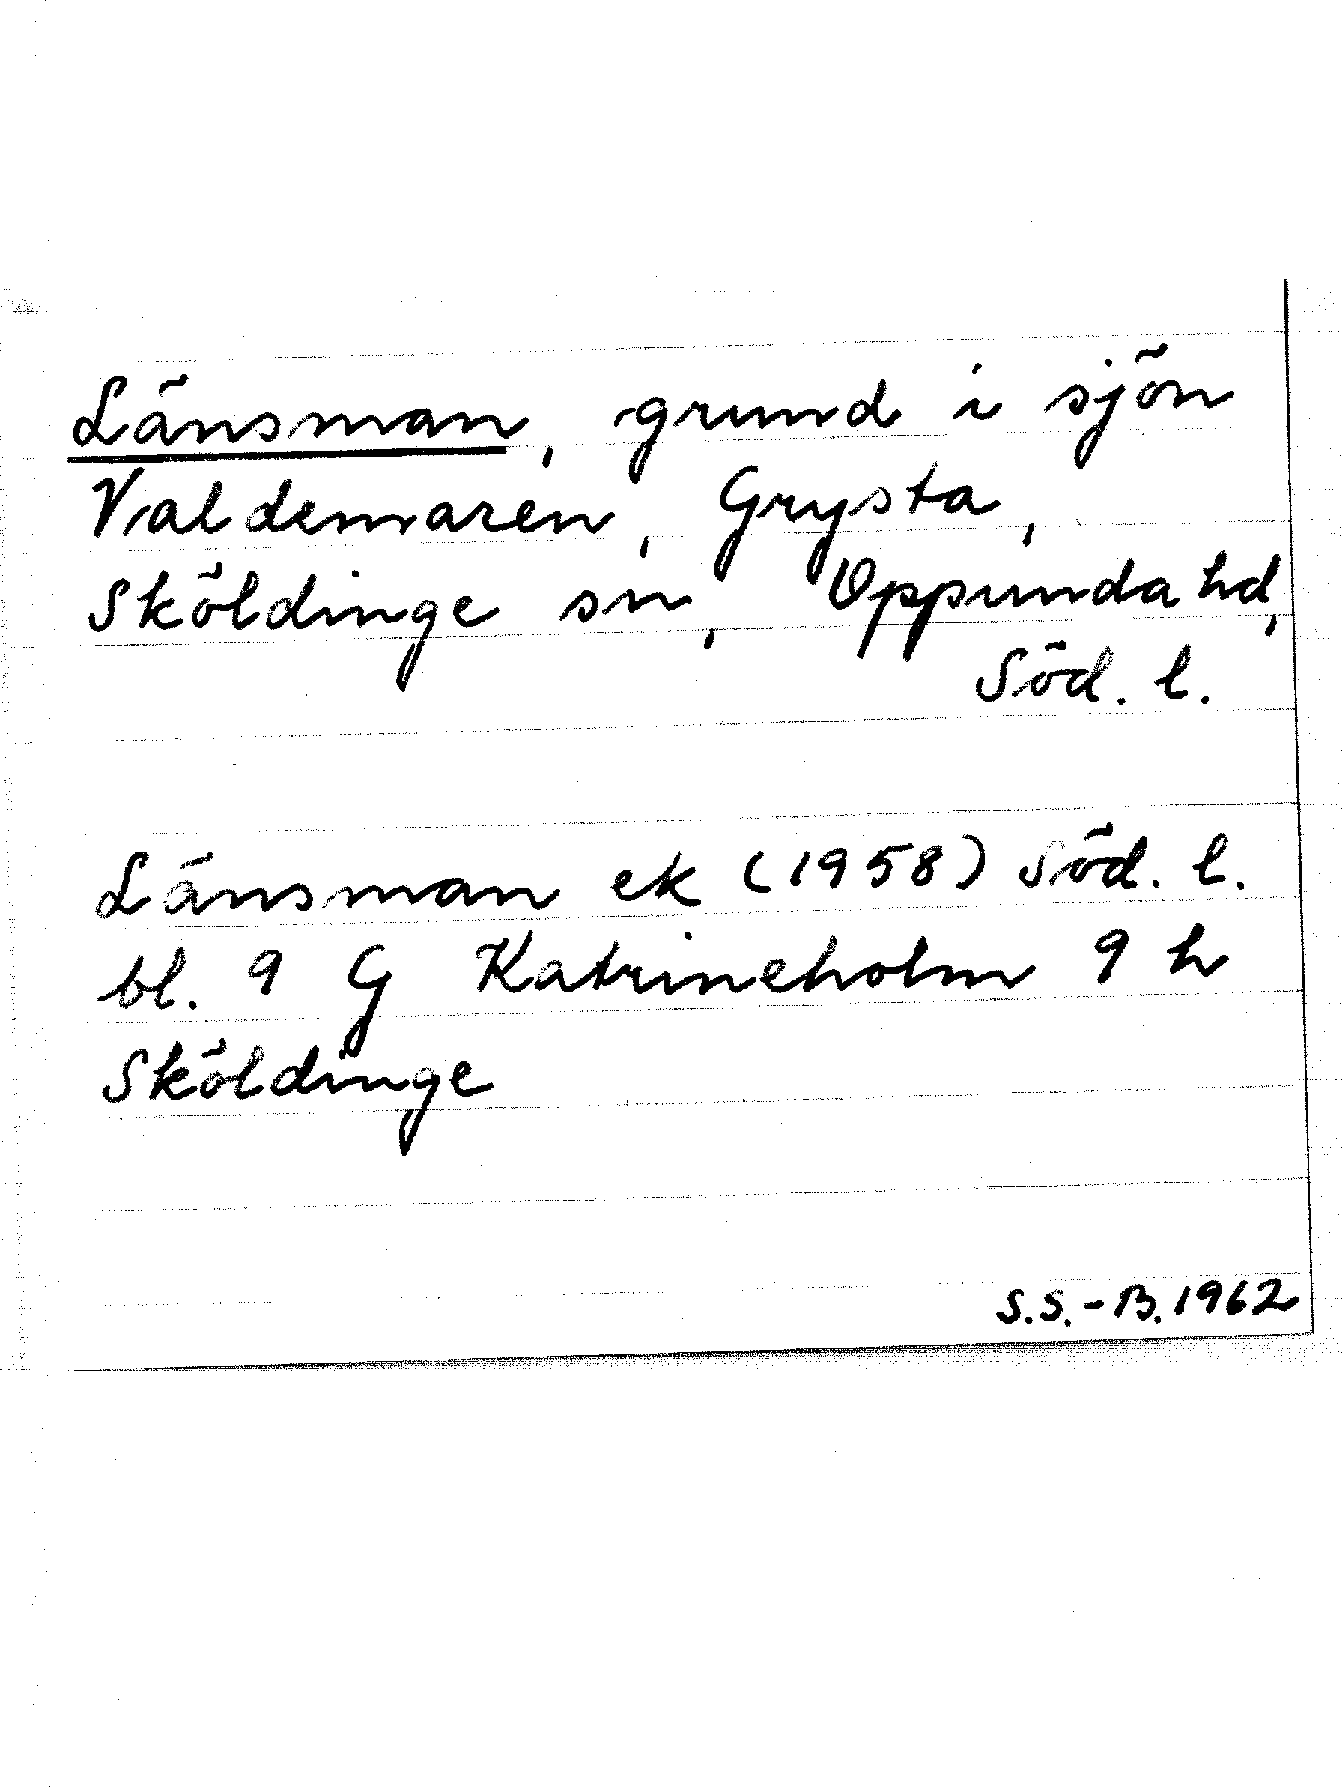 Länsman, grund i sjön
Valdemaren, Grysta,
Sköldinge sn, Oppunda hd,
Söd. l.
Länsman ek (1958) Söd. l.
bl. 9 G Katrineholm 9 h
Sköldinge
S.S.-B. 1962